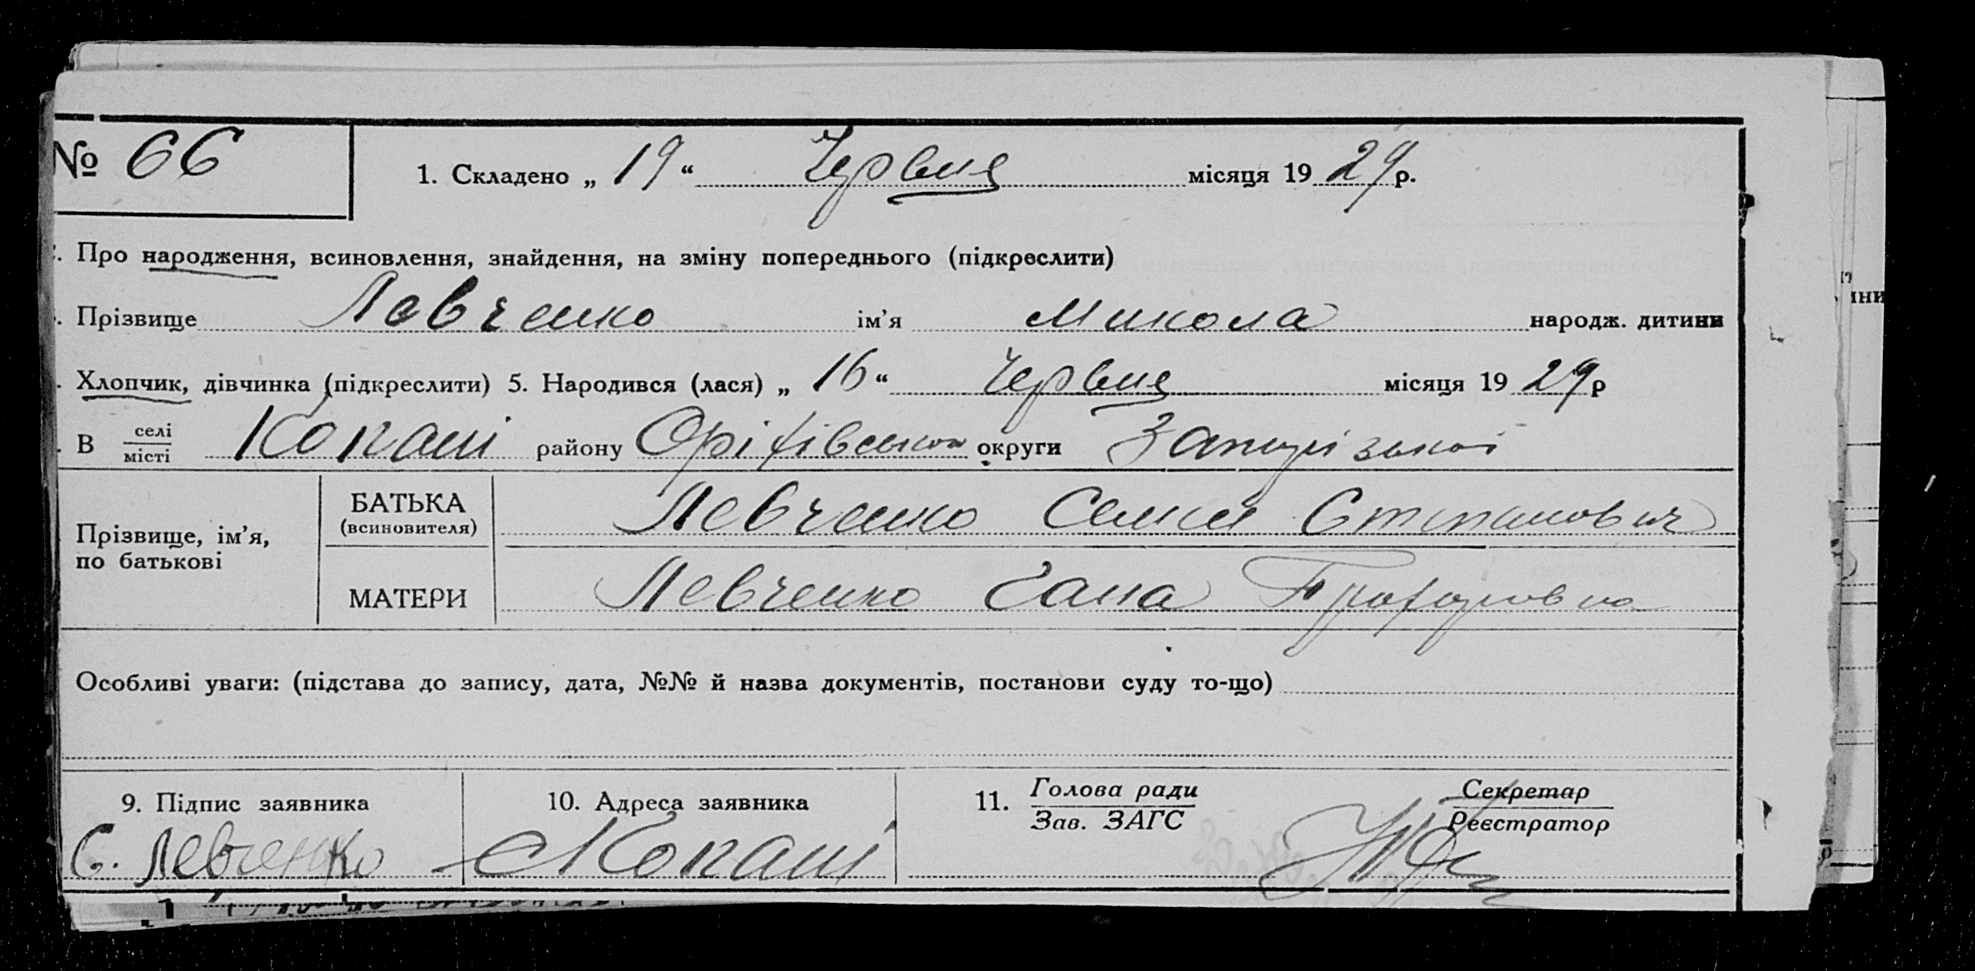 № 66
1. Складено „ 19 “ Червня місяця 19 29 р.
. Про народження, всиновлення, знайдення, на зміну попереднього (підкреслити)
. Прізвище Левченко ім’я Микола народж. дитини
. Хлопчик, дівчинка (підкреслити) 5. Народився (лася) „ 16 “ Червня місяця 19 29 р
. В селі
місті Копані району Оріхівського округи Запорізької
Прізвище, ім’я,
по батькові
БАТЬКА
(всиновителя)
Левченко Семен Степанович
МАТЕРИ
Левченко Гана
Особливі уваги: (підстава до запису, дата, №№ й назва документів, постанови суду то-що)
9. Підпис заявника
С. Левченко
10. Адреса заявника
Копані
11. Голова ради
Зав. ЗАГС
Секретар
Реєстратор